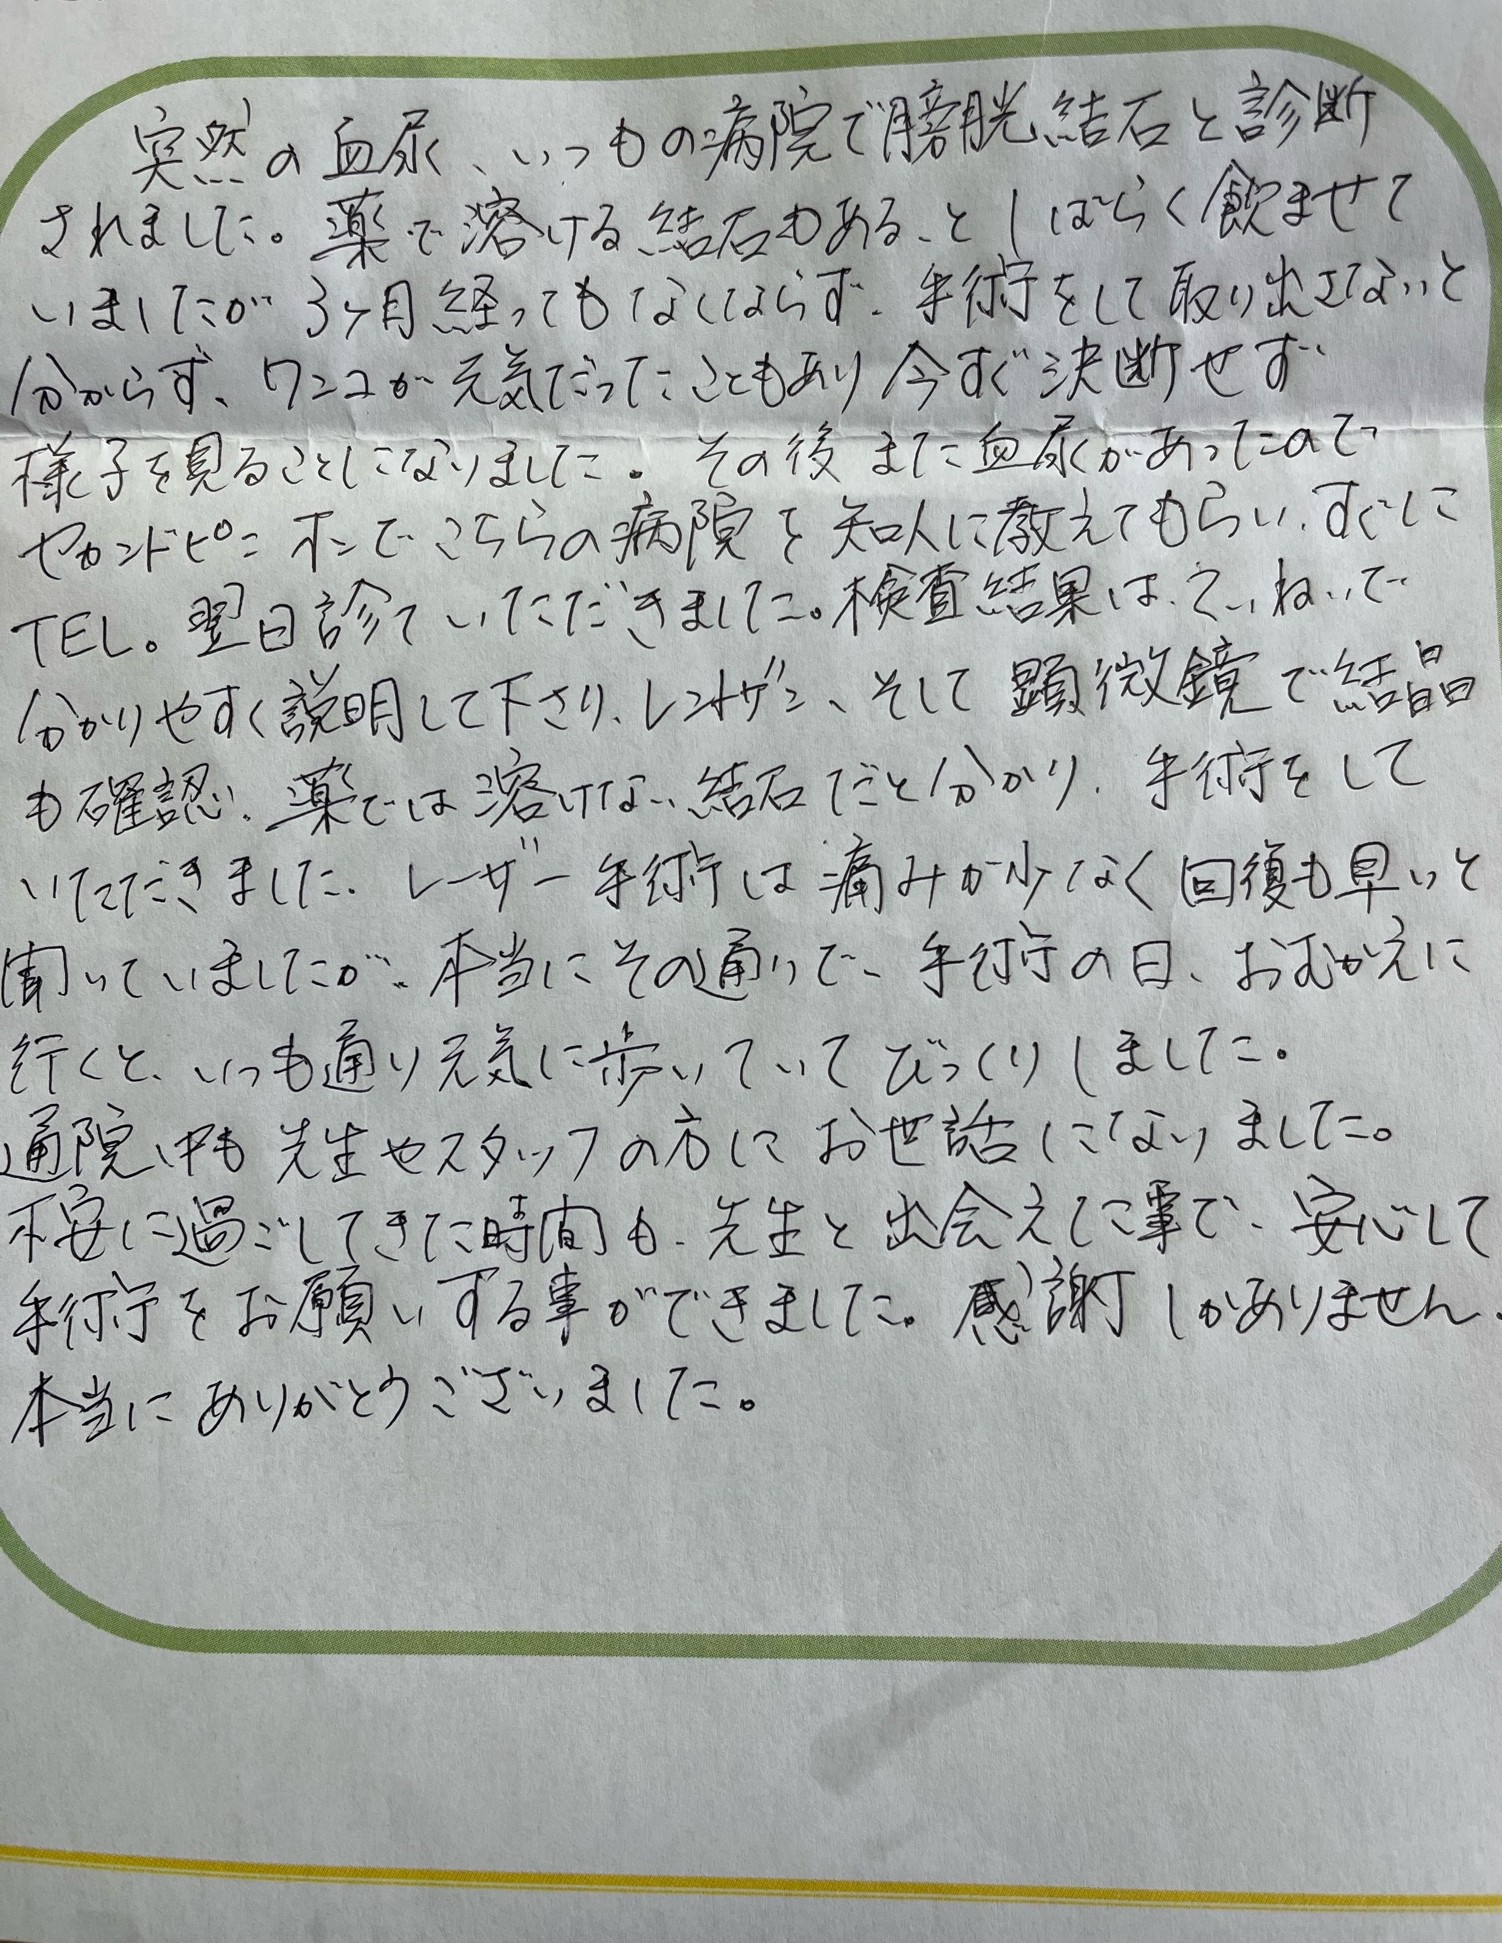 突然の血尿、いつもの病院で膀胱結石と診断
されました。薬で溶ける結石もある、としばらく飲ませて
いましたが3ヶ月経ってもなくならず、手術をして取り出さないと
分からず、ワンコが元気だったこともあり今すぐ決断せず
様子を見ることになりました。その後また血尿があったので
セカンドピニオンでこちらの病院を知人に教えてもらい、すぐに
TEL。翌日診ていただきました。検査結果は、ていねいで
分かりやすく説明して下さり、レントゲン、そして顕微鏡で結晶
も確認、薬では溶けない結石だと分かり、手術をして
いただきました。レーザー手術は痛みが少なく回復も早いと
聞いていましたが、本当にその通りで、手術の日、おむかえに
行くと、いつも通り元気に歩いていてびっくりしました。
通院中も先生やスタッフの方にお世話になりました。
不安に過ごしてきた時間も、先生と出会えた事で、安心して
手術をお願いする事ができました。感謝しかありません。
本当にありがとうございました。